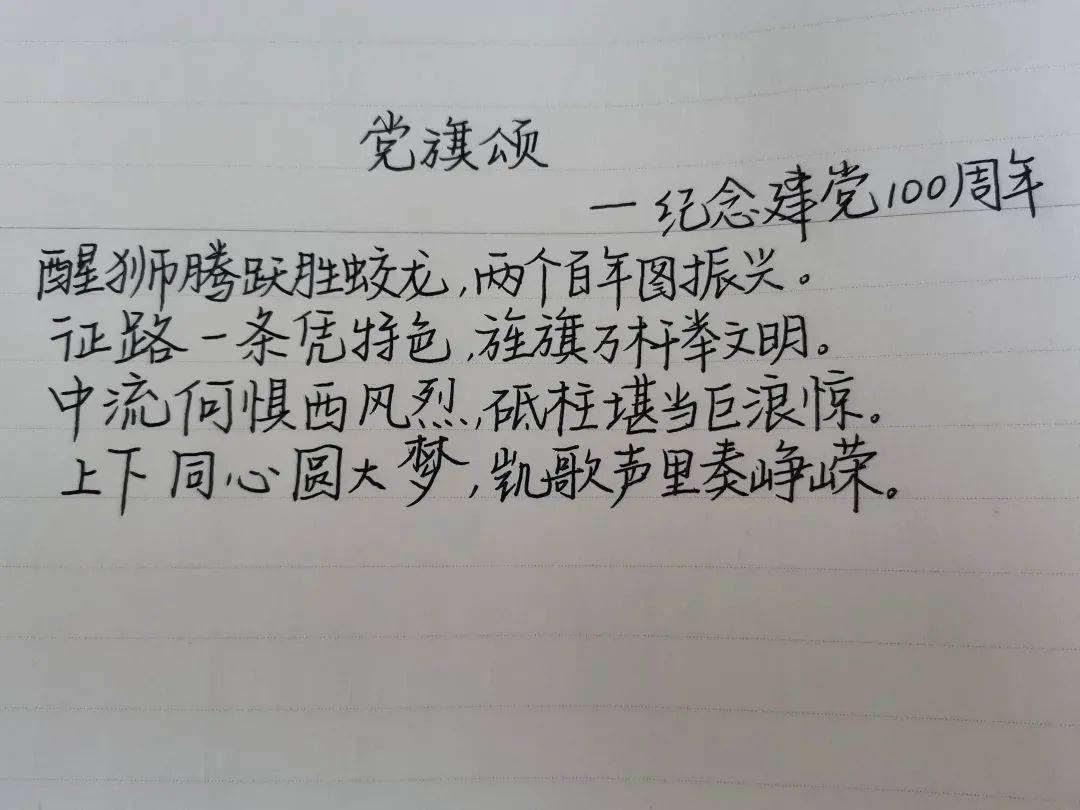 党旗颂
—纪念建党100周年
醒狮腾跃胜蛟龙,两个百年图振兴。
征路一条凭特色,旌旗万杆举文明。
中流何惧西风烈,砥柱堪当巨浪惊。
上下同心圆大梦,凯歌声里奏峥嵘。